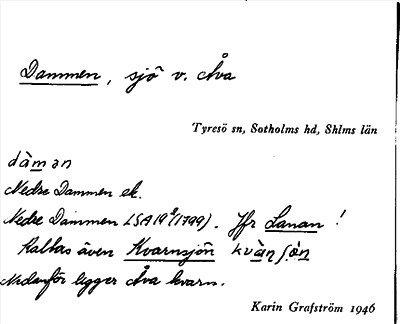 Dammen, sjö v. Åva
Tyresö sn, Sotholms hd, Shlms län
dàman
Nedre Dammen ek.
Nedre Dammen LSA 19²(1799). Jfr Lanan!
Kallas även Kvarnsjön kvàn∫ön
Nedanför ligger Åva kvarn.
Karin Grafström 1946